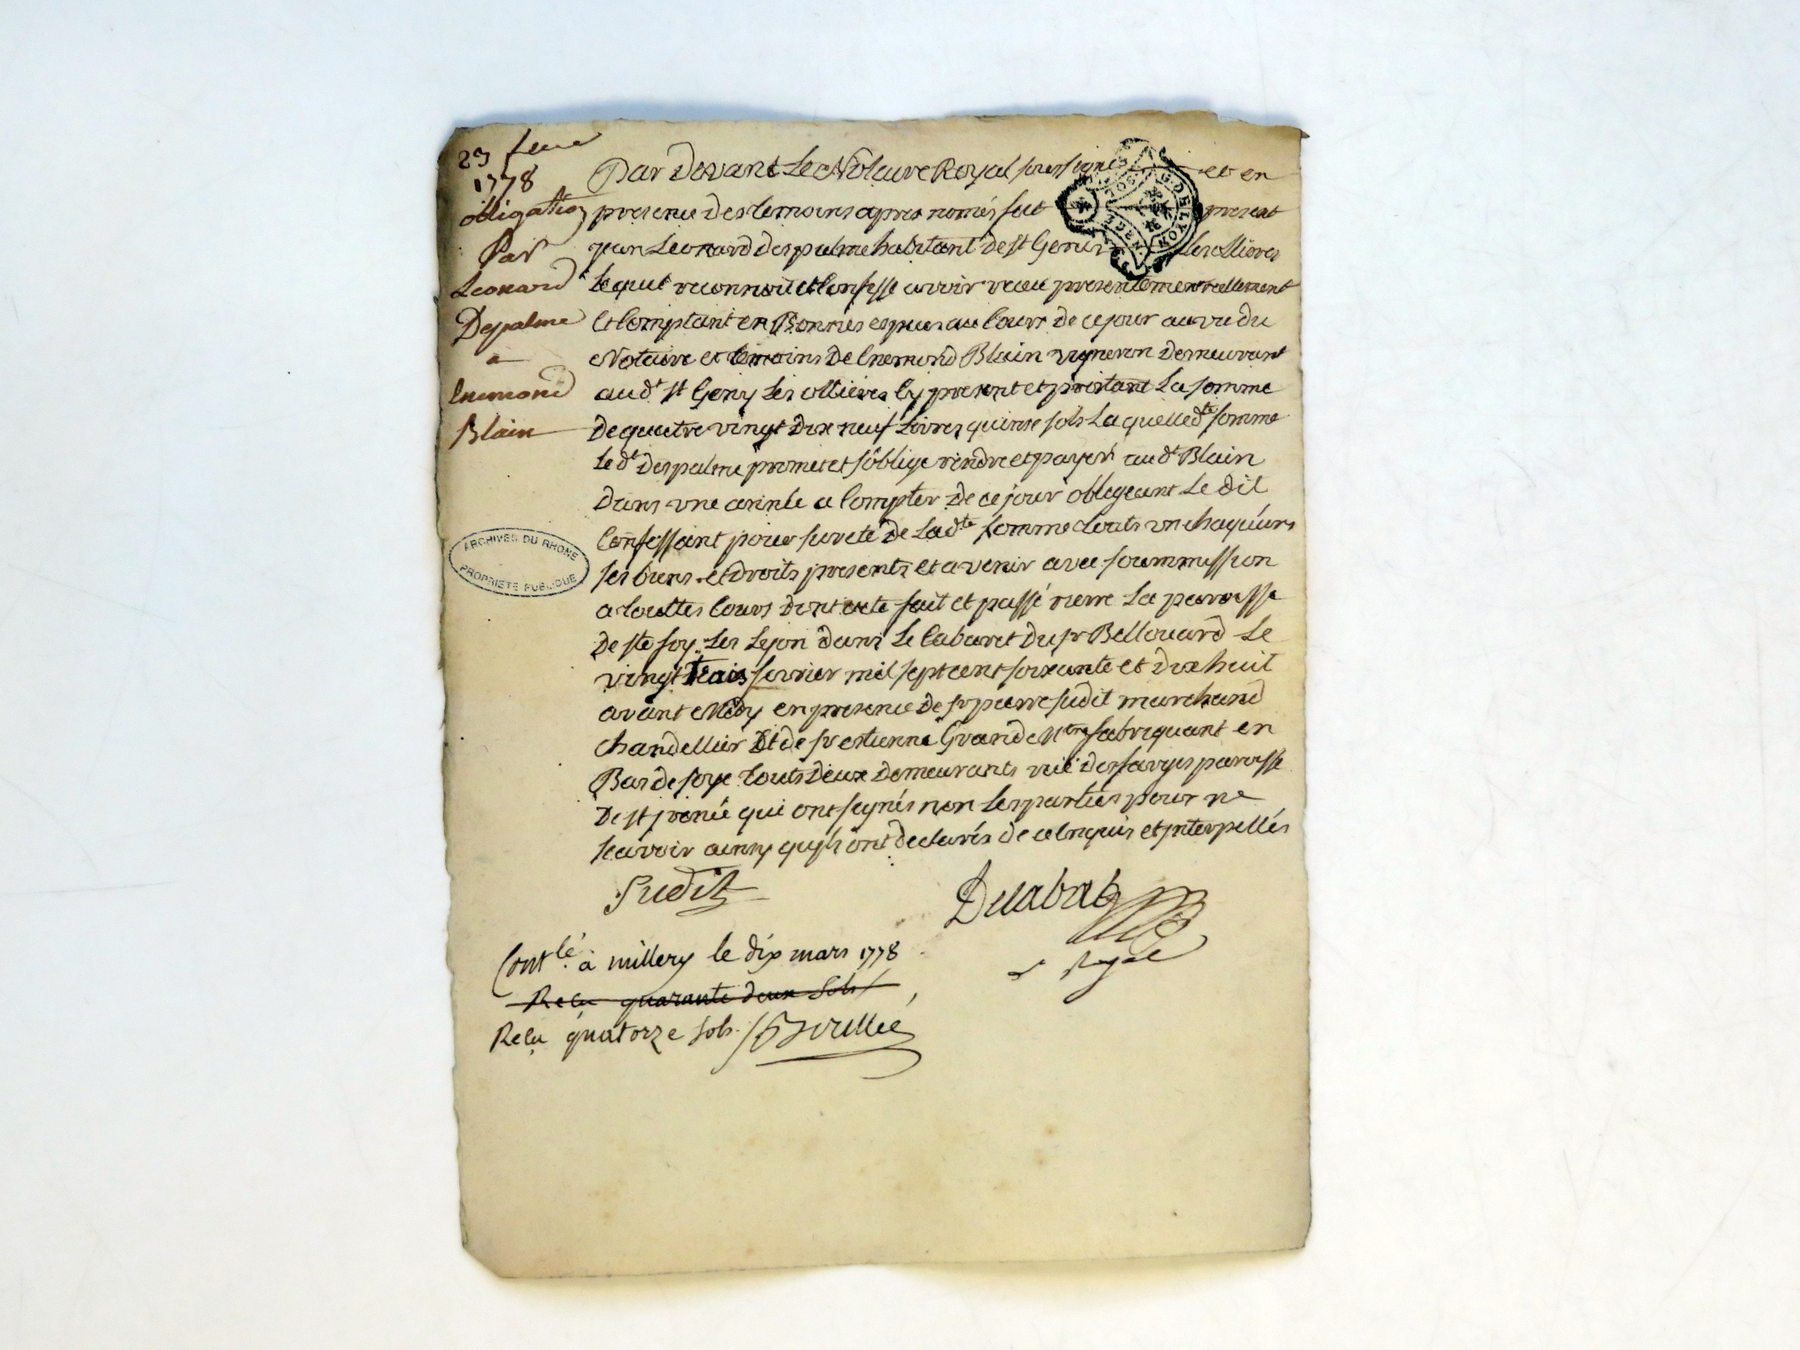 23 fevr
1778
obligation
Par
Leonard
Despalme
a
Enemond
Blain
Par Devant Le Notaire Royal soussigné et en
presence Des temoins apres només fut present
jean Leonard Despalme habitant de St Genis Les ollieres
Lequel reconnoit et Confesse avoir receu presentement reellement
et Comptant en Bonnes especes au Cours De ce jour au vu du
Notaire et temoins De Enemond Blain vigneron demeurant
aud.t St Geny Les ollieres Cy present et pretant La somme
De quatre vingt Dix neuf Livres quinse sols Laquelle d.te somme
Le d.t Despalme promet et s'oblige rendre et payer aud.t Blain
Dans une année a Compter De ce jour obligeant Le dit
Confessant pour sureté De Lad.te somme touts un chaqu'uns
ses biens et Droits presents et avenir avec soummission
a touttes Cours Dont acte fait et passé riere La paroisse
De Ste foy Les Lyon dans Le Cabaret Du sr Bellouard Le
vingt trais fevrier mil sept cent soixante et dix huit
avant Midy en presence De sr pierre sudit marchand
chandellier Et de sr estienne Grand Mtre fabriquant en
Bas de soye touts Deux demeurants rue Des farges paroisse
De St jrenée qui ont signés non Les parties pour ne
scavoir ainsy quyls ont declarés de ce Enquis et jnterpellés
Sudit
Delabat
N Royal
Cont.lé à millery le dix mars 1778
Reçu quarante deux sols
Reçu quatorze sols
ARCHIVES DU RHONE
PROPRIÉTÉ PUBLIQUE
G. DE LYON